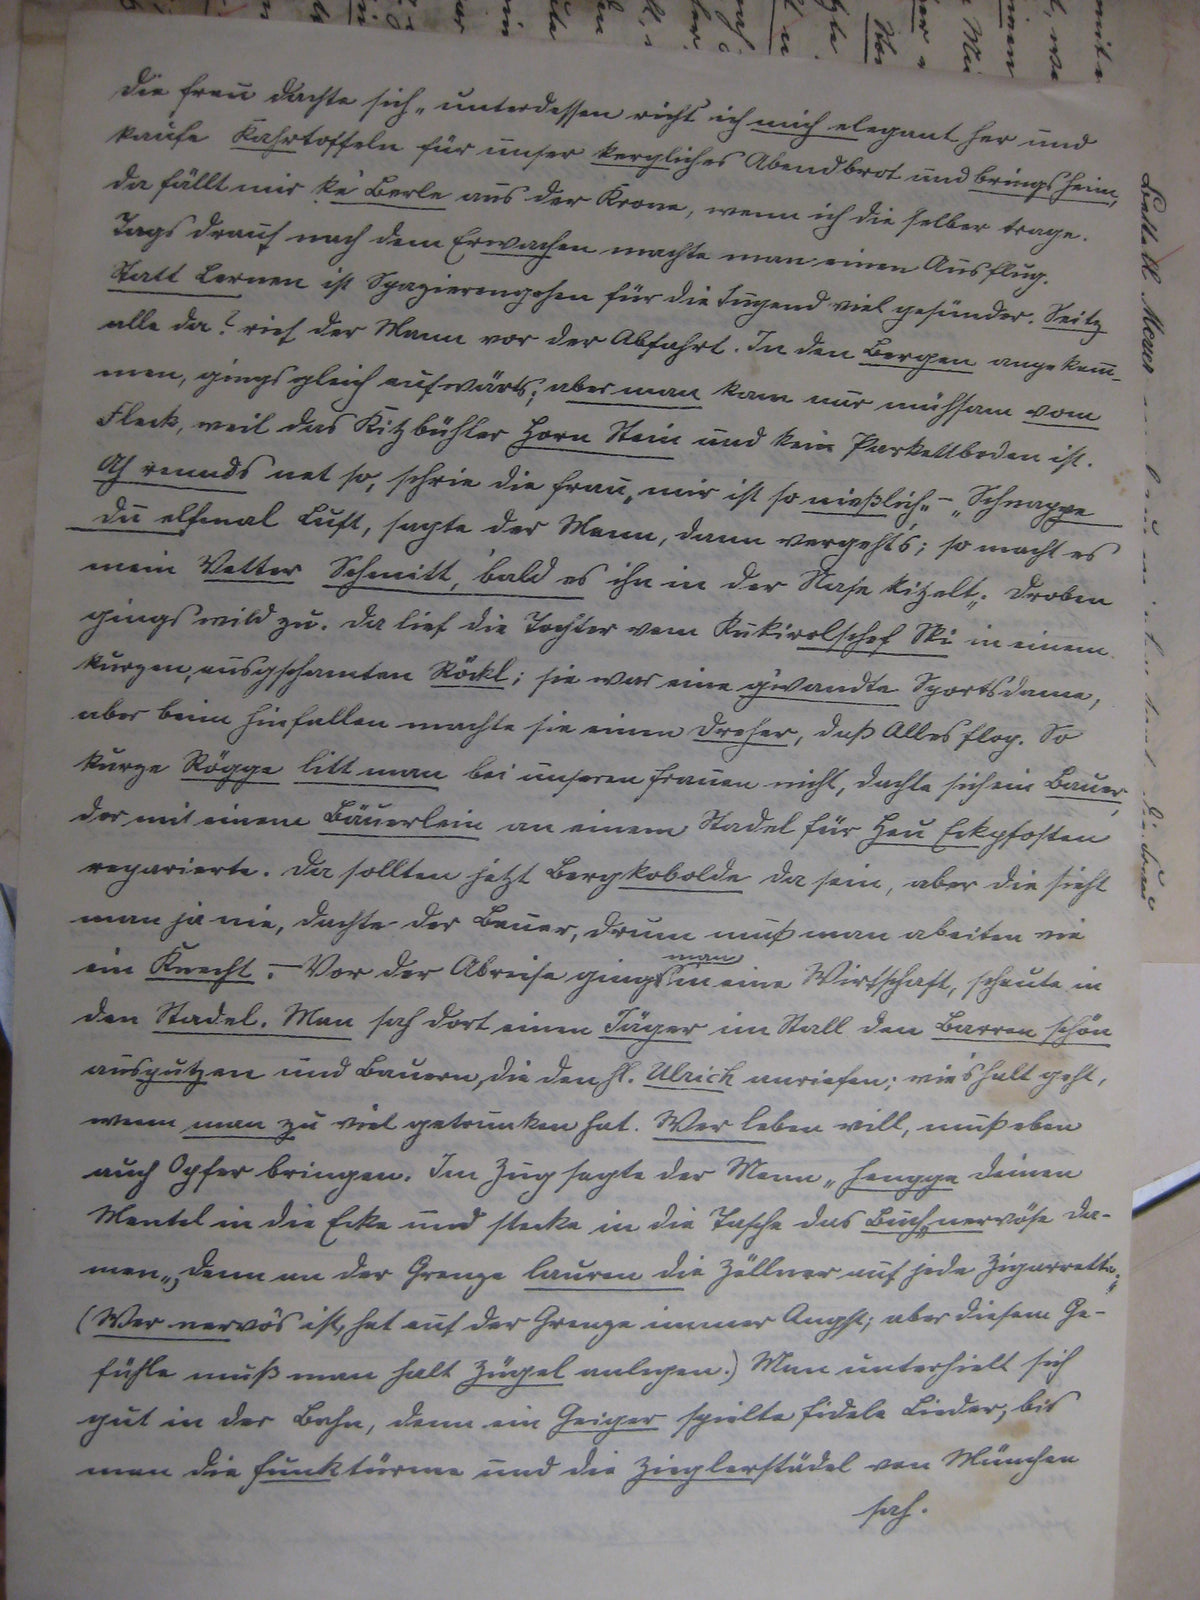 Die Frau dachte sich „unterdessen richt' ich mich elegant her und
kaufe Kahrtoffeln für unser kergliches Abendbrot und brings heim,
da fällt mir ke' Berle aus der Krone, wenn ich die selber trage.
Tags drauf nach dem Erwachen machte man einen Ausflug.
Statt Lernen ist Spazierengehen für die Jugend viel gesünder. Seitz
alle da? rief der Mann vor der Abfahrt. In den Bergen angekom-
men, gings gleich aufwärts; aber man kam nur mühsam vom
Fleck, weil das Kitzbühler Horn Stein und kein Parkettboden ist.
Ah rennds net so, schrie die Frau, mir ist so nießlich." – „Schnappe
du elfmal Luft, sagte der Mann, dann vergeht's; so macht es
mein Vetter Schmitt, bald es ihn in der Nase kitzelt". Droben
gings wild zu. Da lief die Tochter vom Kukirolschef Ski in einem
kurzen, ausgschamten Röckl; sie war eine g'wandte Sportsdame,
aber beim Hinfallen machte sie einen Dreher, daß Alles flog. So
kurze Rögge litt man bei unseren Frauen nicht, dachte sich ein Bauer,
der mit einem Bäuerlein an einem Stadel für Heu Eckpfosten
reparierte. Da sollten jetzt Bergkobolde da sein, aber die sieht
man ja nie, dachte der Bauer, drum muß man abeiten wie
ein Knecht. – Vor der Abreise ging man in eine Wirtschaft, schaute in
den Stadel. Man sah dort einen Jäger im Stall den Barren schön
ausputzen und Bauern, die den hl. Ulrich anriefen; wie's halt geht,
wenn man zu viel getrunken hat. Wer leben will, muß eben
auch Opfer bringen. Im Zug sagte der Mann „hengge deinen
Mantel in die Ecke und stecke in die Tasche das Buch „nervöse Da-
men", denn an der Grenze lauren die Zöllner auf jede Zigarrette."
(Wer nervös ist, hat auf der Grenze immer Angst; aber diesem Ge-
fühle muß man halt Zügel anlegen.) Man unterhielt sich
gut in der Bahn, denn ein Geiger spielte fidele Lieder, bis
man die Funktürme und die Zieglerstädel von München
sah.